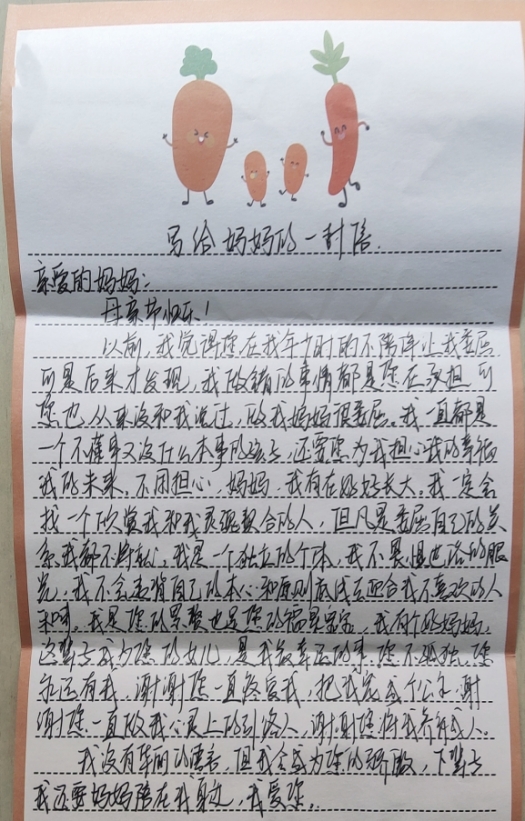 写给妈妈的一封信
亲爱的妈妈:
母亲节快乐!
以前,我觉得您在我年少时的不陪伴让我委屈
可是后来才发现,我做错的事情都是您在承担,可
您也从来没和我说过,做我妈妈很委屈。我一直都是
一个不懂事又没什么本事的孩子,还要您为我担心我的幸福
我的未来,不用担心,妈妈,我有在好好长大,我一定会
找一个欣赏我和我灵魂契合的人,但凡是委屈自己的关
系我都不将就,我是一个独立的个体,我不畏惧世俗的眼
光,我不会违背自己的本心和原则去迎合我不喜欢的人
和事,我是您的累赘也是您的福星宝宝,我有个好妈妈,
这辈子成为您的女儿,是我最幸运的事,您不孤独,您
永远有我,谢谢您一直疼爱我,把我宠成个公主,谢
谢您一直做我心灵上的引路人,谢谢您将我养育成人。
我没有华丽的语言,但我会成为您的骄傲,下辈子
我还要妈妈陪在我身边,我爱您。